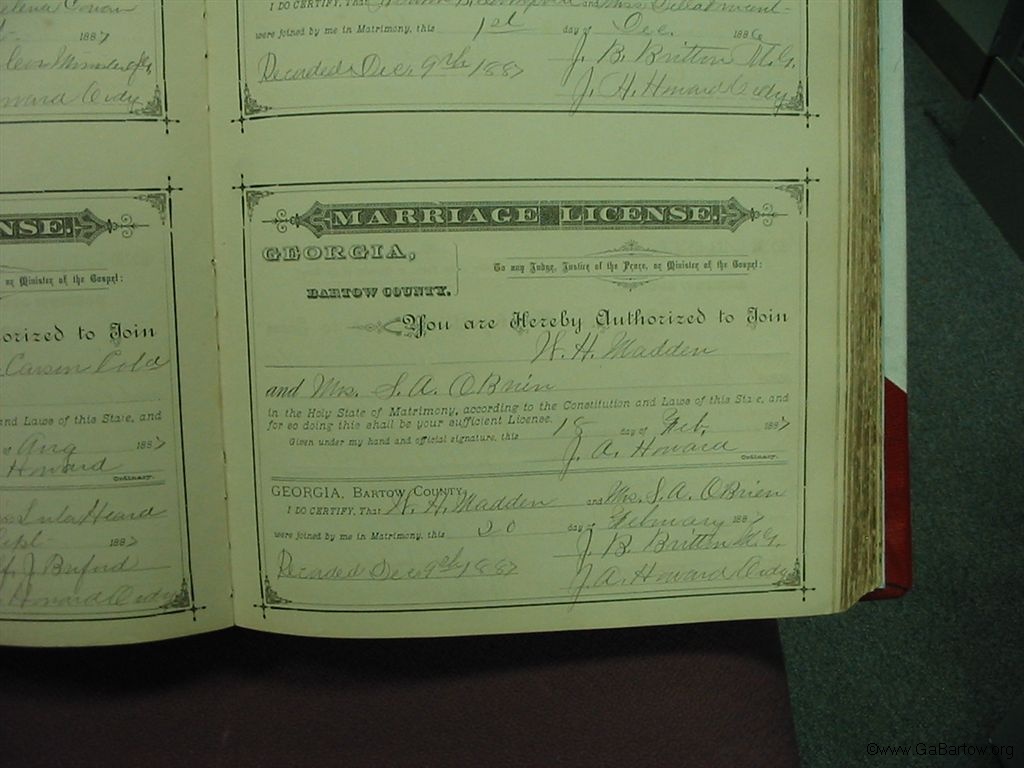 Helena Cowan
1887
Howard Ordy
NSE.
or Minister of the Gospel:
orized to Join
Carson Cobb
and Laws of this State, and
Aug 1887
Howard
Ordinary.
Lula Heard
Sept 1887
J. Buford
Howard Ordy
I DO CERTIFY, That and Miss
were joined by me in Matrimony, this 1st day of Dec. 1886
J. B. Britton M.G.
Recorded Dec, 9th 1887
J. H. Howard Ordy
MARRIAGE LICENSE.
GEORGIA,
BARTOW COUNTY.
To any Judge, Justice of the Peace, or Minister of the Gospel:
You are Hereby Authorized to Join
W. H. Madden
and Mrs. S. A. OBrien
in the Holy State of Matrimony, according to the Constitution and Laws of this State, and
for so doing this shall be your sufficient License.
Given under my hand and official signature, this 18 day of Feb, 1887
J. A. Howard
Ordinary.
GEORGIA, BARTOW COUNTY
I DO CERTIFY, That W. H. Madden and Mrs. S. A. OBrien
were joined by me in Matrimony, this 20 day of February 1887
J. B. Britton M.G.
Recorded Dec 9th 1887
J. A. Howard Ordy
©www.GaBartow.org